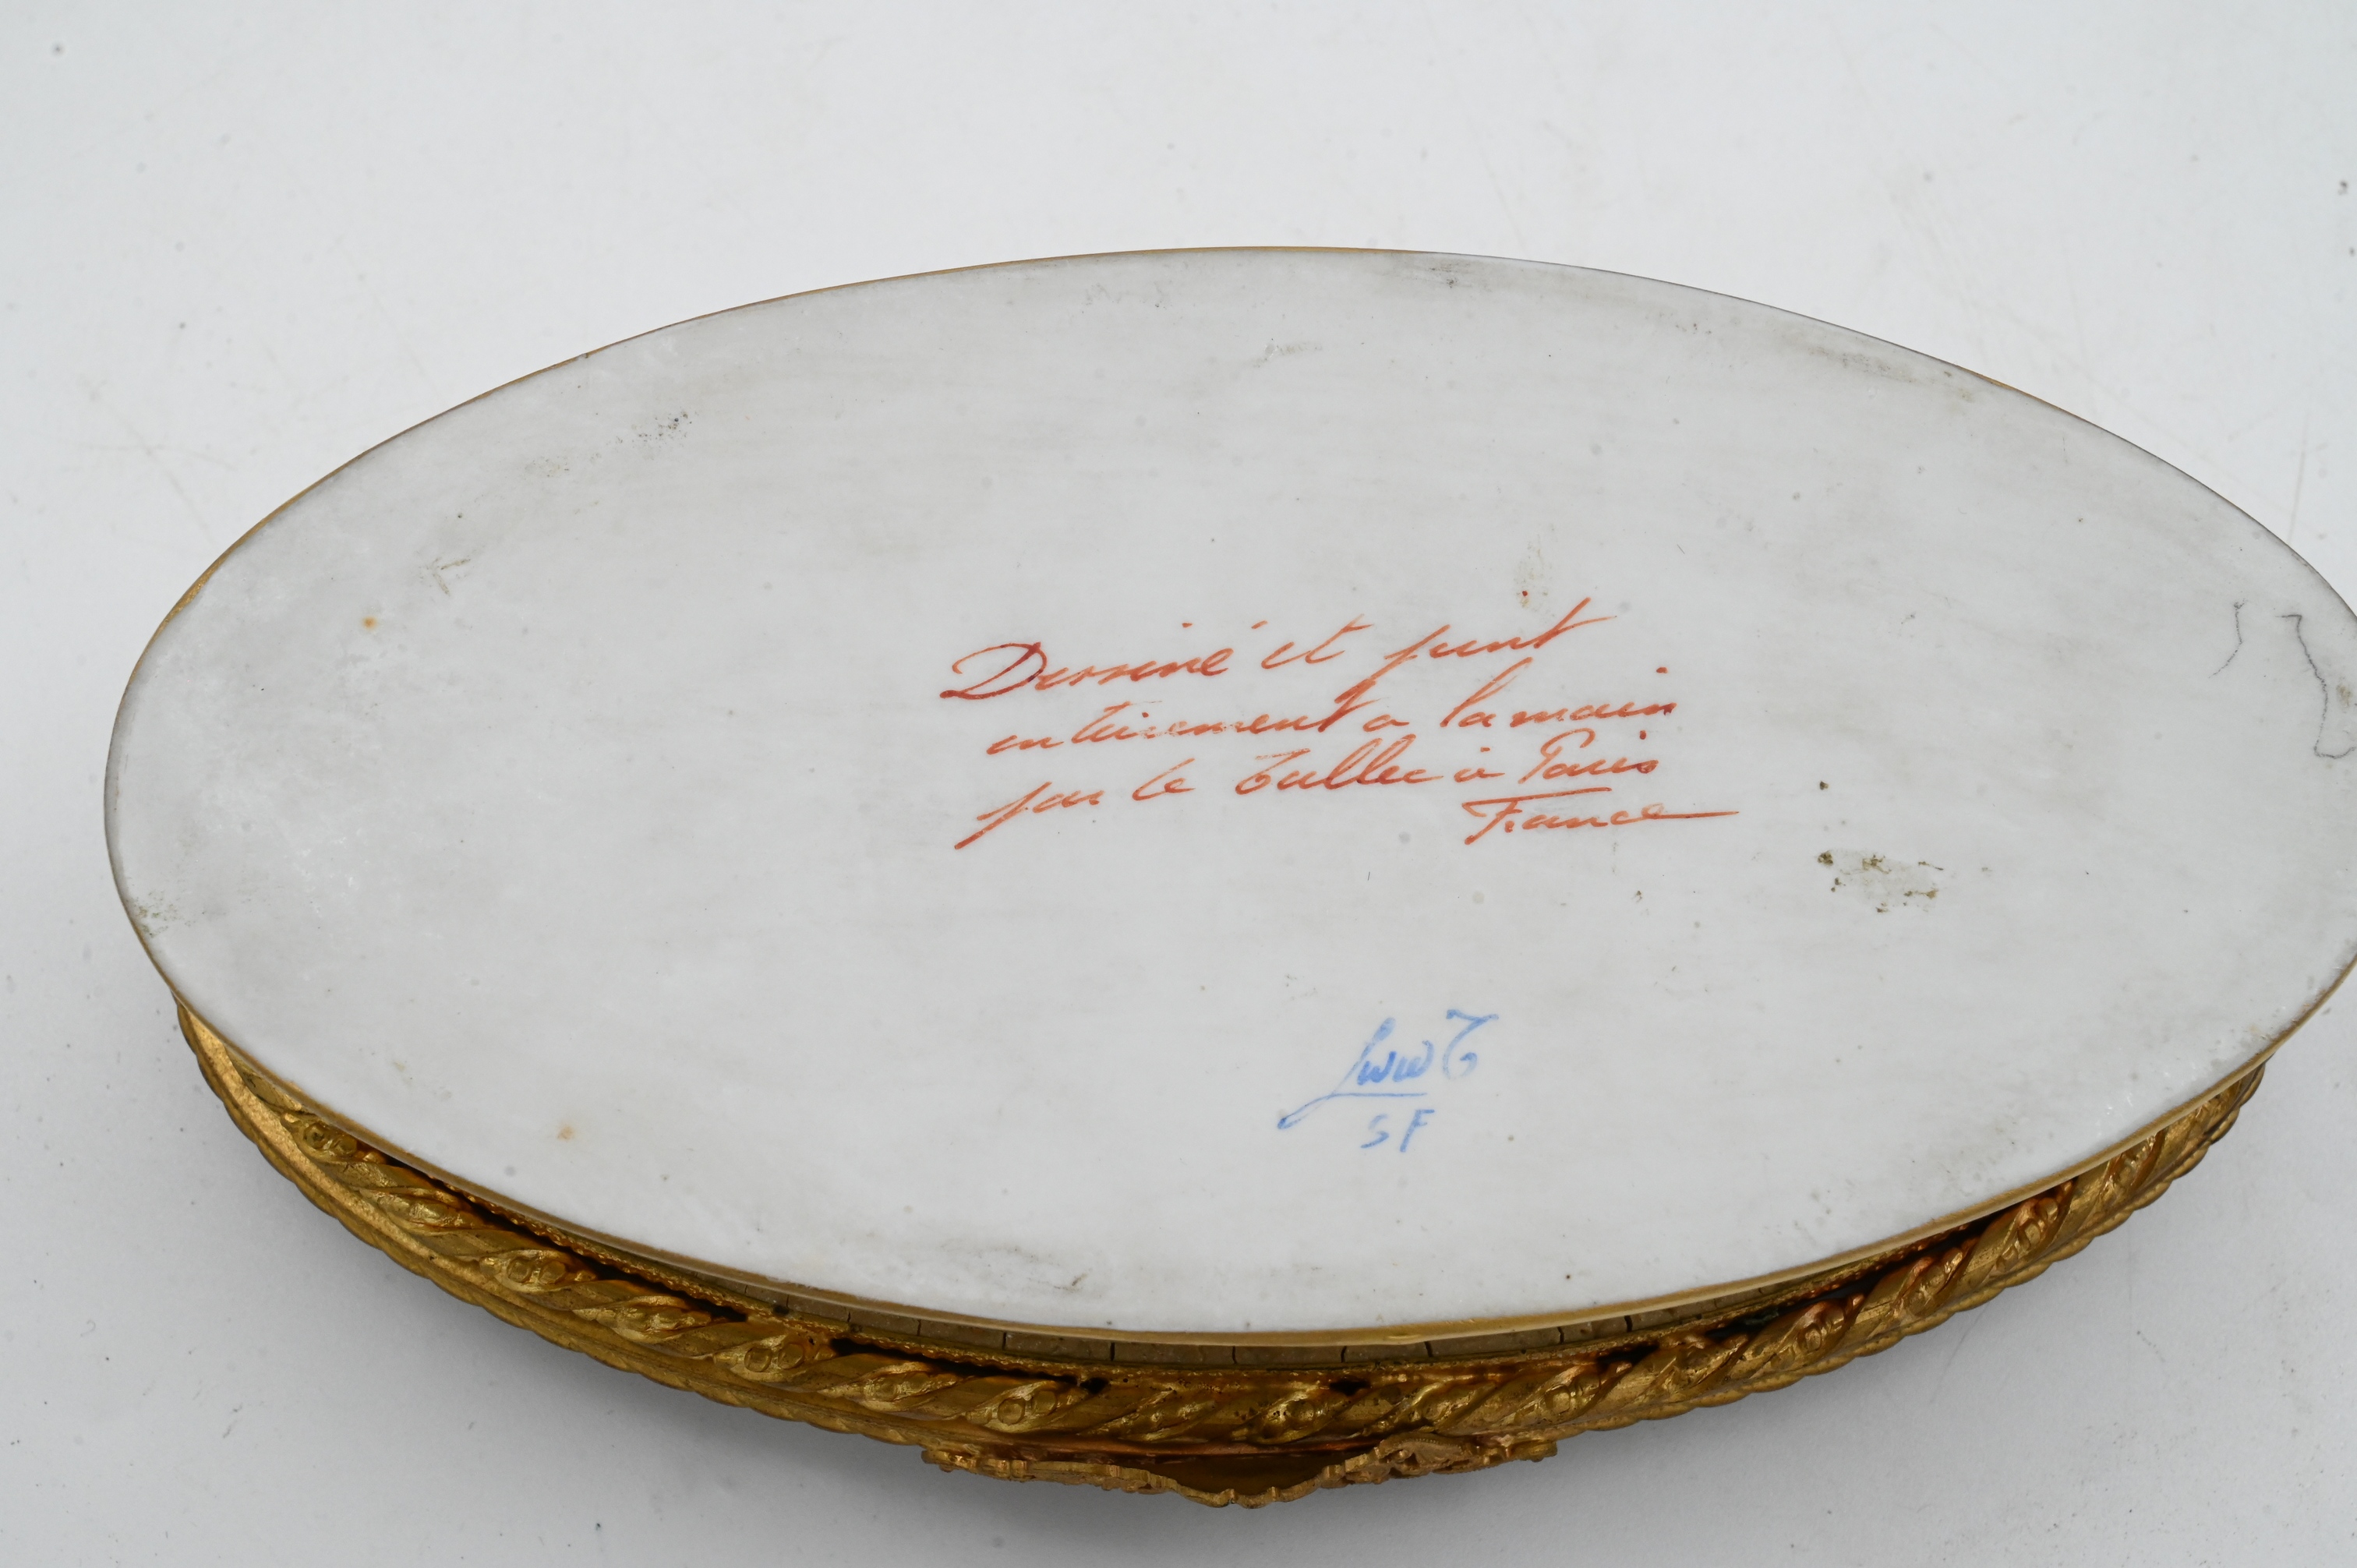 Dessiné et peint
entièrement a la main
par Le Tallec à Paris
France
SF